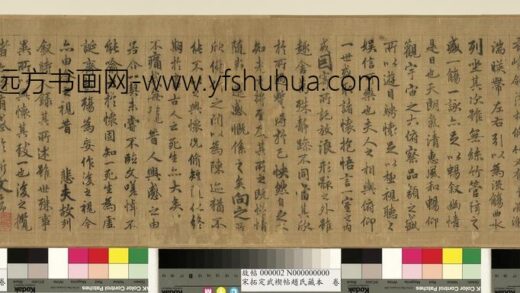 湍暎帶左右引以為流觴曲水
列坐其次雖無絲竹管弦之
盛一觴一詠亦足以暢敘幽情
是日也天朗氣清惠風和暢仰
觀宇宙之大俯察品類之盛
所以遊目騁懷足以極視聽之
娛信可樂也夫人之相與俯仰
一世或取諸懷抱悟言一室之內
或因寄所託放浪形骸之外雖
趣舍萬殊靜躁不同當其欣
於所遇暫得於己怏然自足不
知老之將至及其所之既惓情
隨事遷感慨係之矣向之所
欣俛仰之間以為陳迹猶不
能不以之興懷況脩短隨化終
期於盡古人云死生亦大矣豈
不痛哉每攬昔人興感之由
若合一契未嘗不臨文嗟悼不
能喻之於懷固知一死生為虛
誕齊彭殤為妄作後之視今
亦由今之視昔 悲夫故列
敘時人錄其所述雖世殊事
異所以興懷其致一也後之攬
者亦將有感於斯文
远方书画网-www.yfshuhua.com
故帖 000002 N000000000
宋拓定武禊帖趙氏藏本 卷